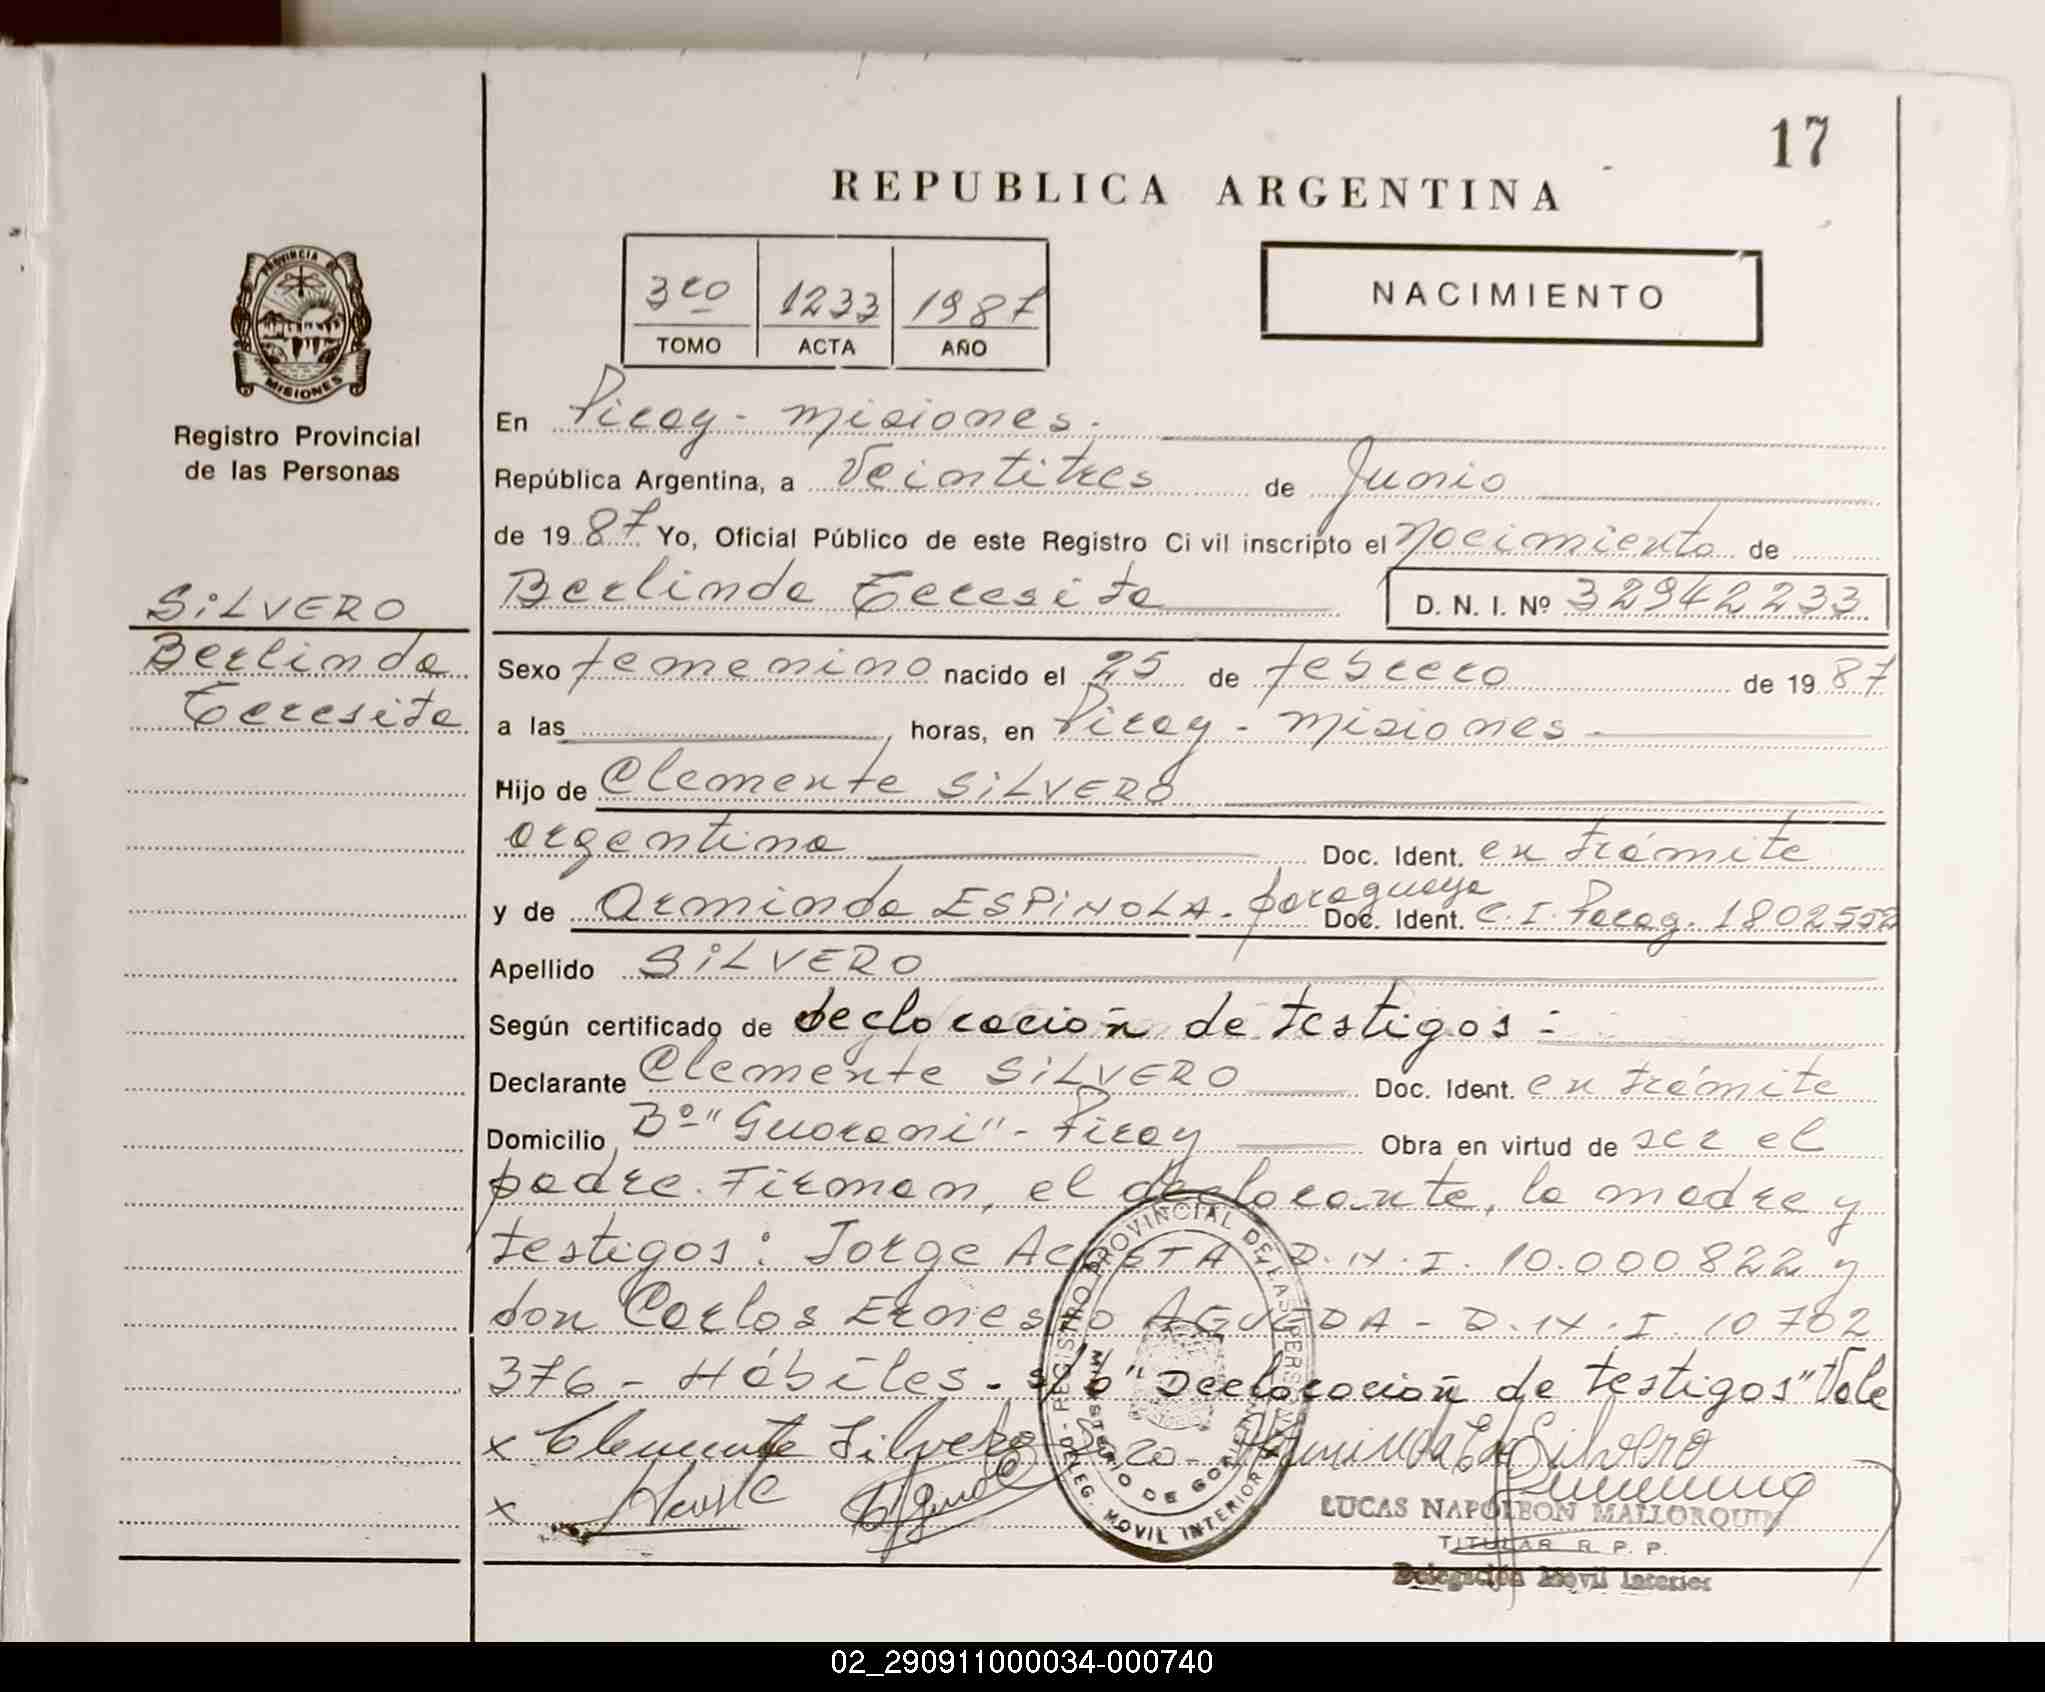 17
REPUBLICA ARGENTINA
PROVINCIA DE
MISIONES
Registro Provincial
de las Personas
3ro 1233 1987
TOMO ACTA AÑO
NACIMIENTO
En Piray - Misiones.
República Argentina, a Veintitres de Junio
de 1987 Yo, Oficial Público de este Registro Civil inscripto el Nacimiento de
Berlinda Teresita D. N. I. Nº 32942233
SiLVERO
Berlinda
Teresita
Sexo femenino nacido el 25 de febrero de 1987
a las horas, en Piray - Misiones -
Hijo de Clemente SiLVERO
argentino Doc. Ident. en trámite
y de Arminda ESPiNOLA - paraguaya Doc. Ident. C. I. Parag. 1802552
Apellido SiLVERO
Según certificado de declaración de testigos :
Declarante Clemente SiLVERO Doc. Ident. en trámite
Domicilio Bº "Guarani" - Piray Obra en virtud de ser el
padre. Firman, el declarante, la madre y
testigos: Jorge ACOSTA D.N.I. 10.000822 y
don Carlos Ernesto AGUEDA - D.N.I. 10 702
376 - Hábiles - s/b "Declaración de testigos" Vale
x Clemente Silvero Arminda E. de Silvero
x
REGISTRO PROVINCIAL DE LAS PERSONAS
MINISTERIO DE GOBIERNO
DELEG. MOVIL INTERIOR
LUCAS NAPOLEON MALLORQUIN
TITULAR R. P. P.
Delegación Móvil Interior
02_290911000034-000740